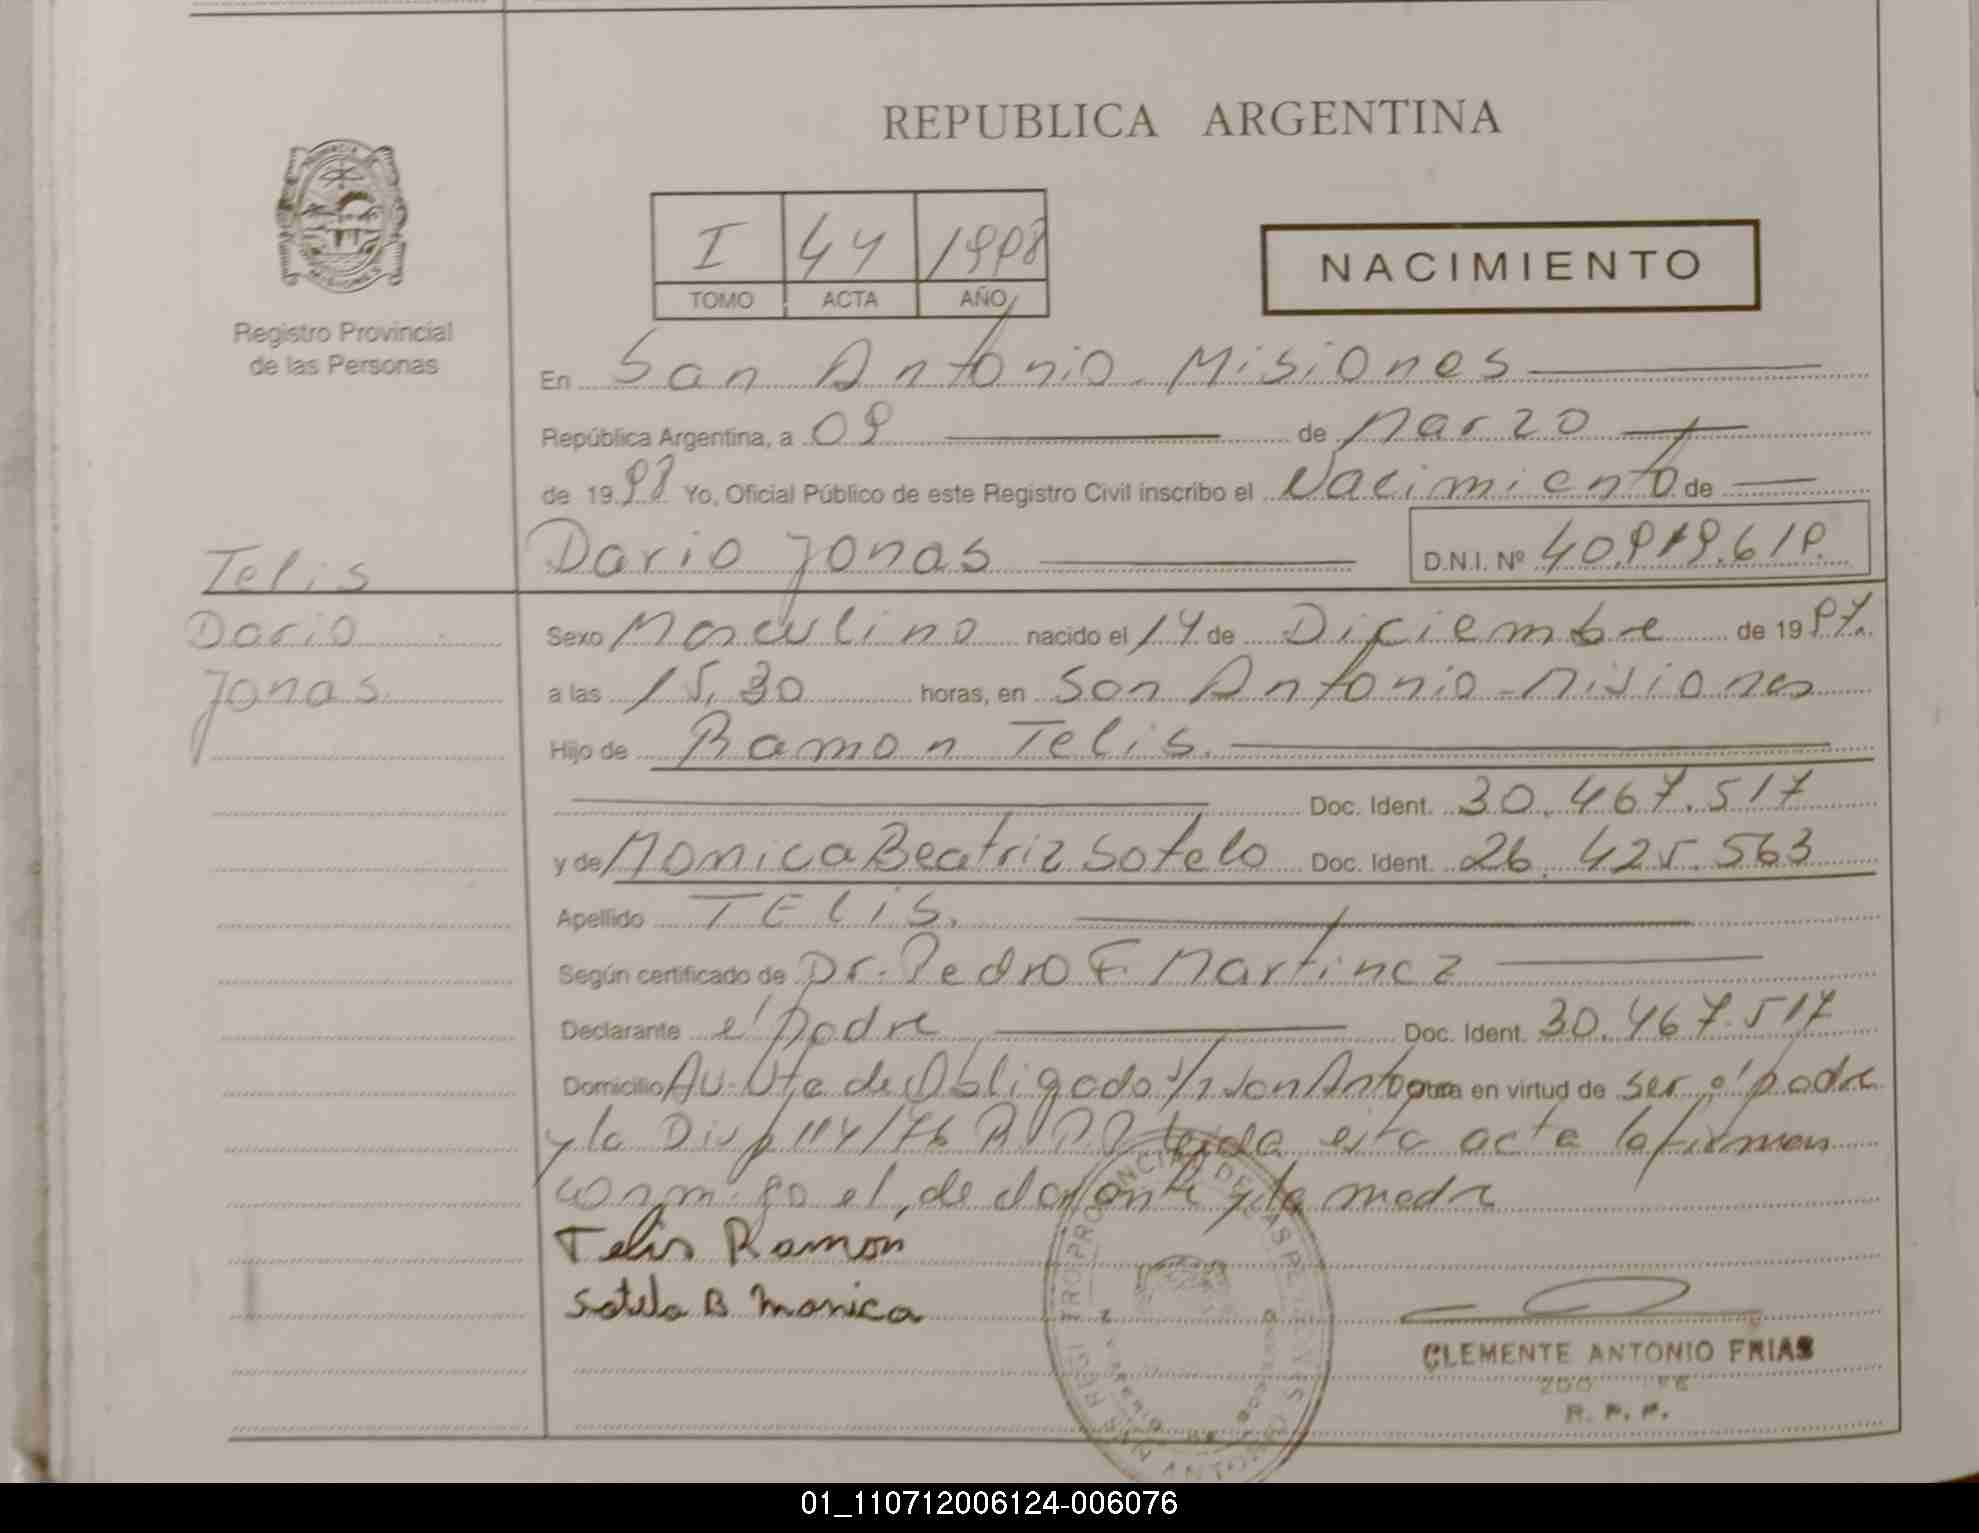 REPUBLICA ARGENTINA
I 44 1998
TOMO ACTA AÑO
NACIMIENTO
Registro Provincial
de las Personas
En San Antonio - Misiones
República Argentina, a 09 de Marzo
de 1998 Yo, Oficial Público de este Registro Civil inscribo el Nacimiento de
Telis
Dario Jonas D.N.I. Nº 40.919.619.
Dario
Jonas
Sexo Masculino nacido el 14 de Diciembre de 1997.
a las 15,30 horas, en San Antonio - Misiones
Hijo de Ramon Telis.
Doc. Ident. 30.467.517
y de Monica Beatriz Sotelo Doc. Ident. 26.425.563
Apellido TELIS.
Según certificado de Dr. Pedro F. Martinez
Declarante el padre Doc. Ident. 30.467.517
Domicilio Av. Vta de Obligado S/n San Antonio en virtud de ser el padre
y la Disp 114/76 R.P.P. leida esta acta la firman
conmigo el declarante y la madre
Telis Ramon
Sotelo B Monica
CLEMENTE ANTONIO FRIAS
R. P. P.
REGISTRO PROVINCIAL DE LAS PERSONAS
SAN ANTONIO
01_110712006124-006076